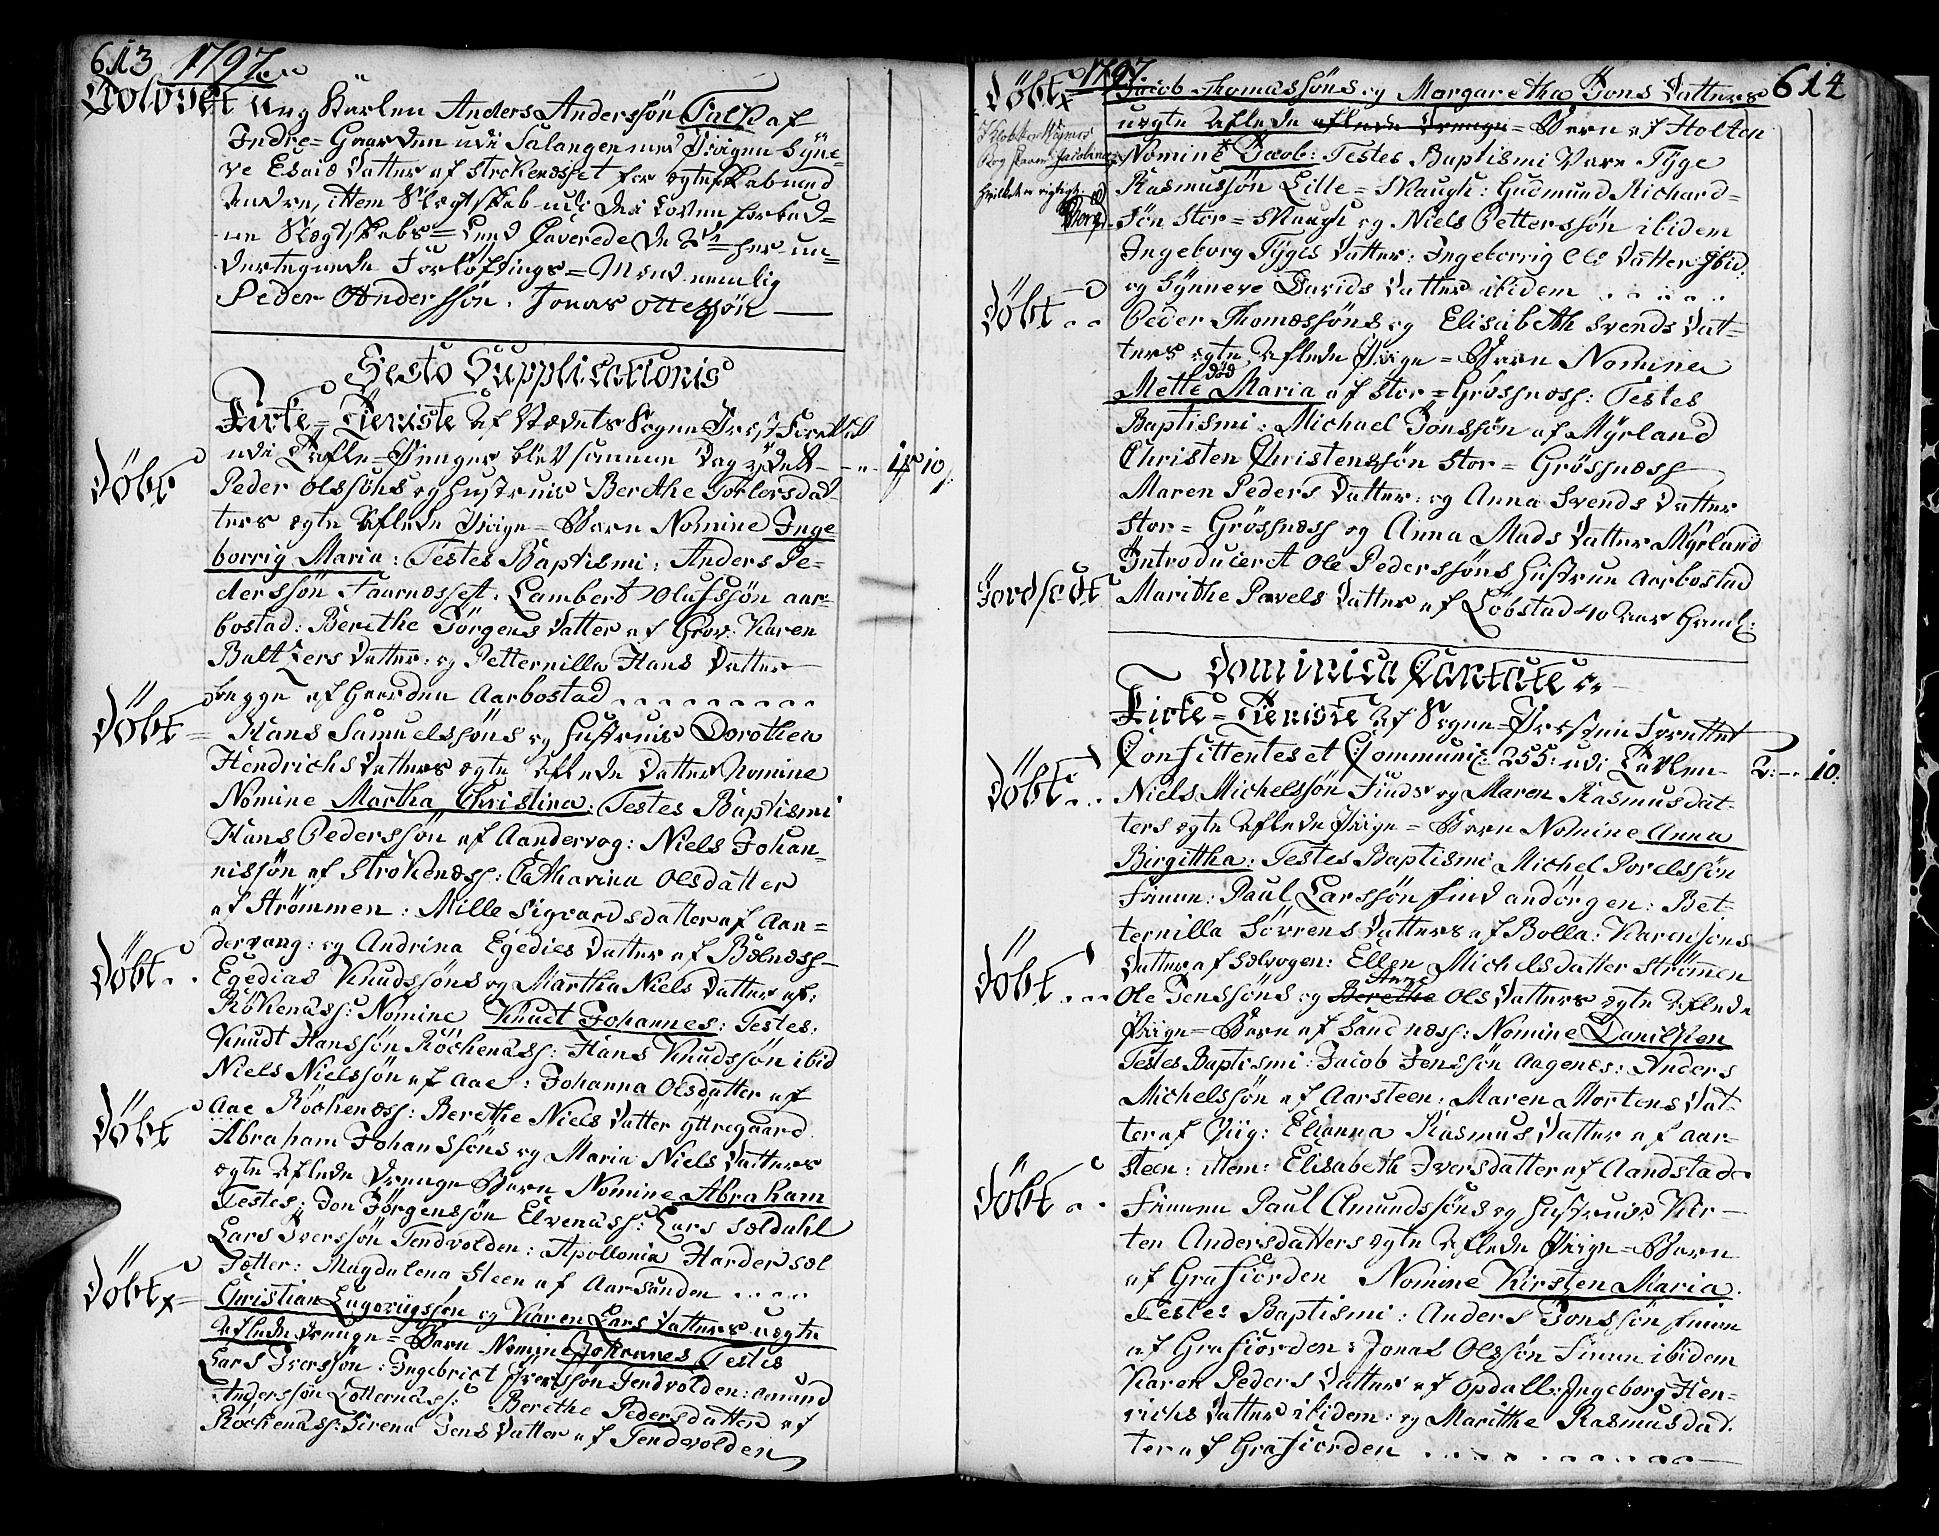 613 1797
Trolovet Ung Karlen Anders Anderssøn Falch af
Indre=Gaarden udi Salangen med Pigen Syne=
ve Esaiæ Datter af Strokenæsset for ægteskab med
hindanden, ittem Slegtskab udi dei Loven forbud=
ne Slegtskabs=Leed Caverede de 2de her un=
dertegnede Forløftings=Mænd nemlig
Peder Anderssøn. Jonas Ottessøn
Festo Supplicationis
Kirke=Tieniste af Stedets Sogne Præst Forrettet
udi Tafle=Penger blev samme Dag ydet 1 10
Døbt Peder Olssøns og Hustrues Berethe Torlersdat-
ters ægte Aflede Pige=Barn Nomine Inge
borrig Maria: Testes Baptismi: Anders Pe=
derssøn Faarnesset. Lambert Olufssøn Aar=
bostad: Berethe Jørgens Datter af Grov: Karen
Baltzers Datter: og Petternilla Hans Datter
begge af Gaarden Aarbostad
Døbt Hans Samuelssøns og Hustrues Dorothea
Hendrichs Datters ægte Aflede Datter Nomine
Nomine Martha Christina: Testes Baptismi
Hans Pederssøn af Aandervog: Niels Johan-
nissøn af Strokenæss: Catharina Olsdatter
af Strømmen: Mille Sigvardsdatter af Aan=
dervaag: og Andrina Egedies Datter af Bolnæss
Døbt Egedias Knudssøns og Martha Niels Datter af:
Røkenæss: Nomine Knudt Johannes: Testes:
Knudt Hanssøn Røchenæss: Hans Knudssøn ibid
Niels Nielssøn af Aae: Johanna Olsdatter af
Aae Røchenæss: Berethe Niels Datter Yttregaard
Døbt Abraham Johanssøns og Maria Niels Datters
ægte Aflede Drenge Barn Nomine Abraham
Testes; Jon Jørgenssøn Elvenæss: Lars Sældahl
Lars Iverssøn Tendvolden: Apollonia Harder Sæl
Fætter: Magdalena Steen af Aarsanden
Døbt x Christian Lagerugssøn og Karen Lars Datters uægte
Aflede Drenge=Barn Nomine Johannes Testes
Lars Iverssøn: Ingebrict Iverssøn Tendvolden: Amund
Anderssøn Lotternæss: Berethe Pedersdatter af
Røchenæss: Sirena Jens Datter af Tendvolden
1797 614
Døbt x Jacob Thomassøns og Margaretha Jons Datters
uægte Aflede aflede Drenge=Barn af Holten
Nomine Jacob: Testes Baptismi Vare Tyge
Rasmussøn Lille=Skaugh: Gudmund Richard=
søn Stor=Skaugh og Niels Petterssøn ibidem
Ingeborg Tyges Datter: Ingeborrig Ols Datter ibid.
og Synneve Davids Datter ibidem
Døbt Peder Thomessøns og Elisabeth Svends Dat-
ters ægte Aflede Pige=Barn Nomine
død
Mette Maria af Stor=Grøssnæss: Testes
Baptismi: Michael Jonssøn af Myrland
Christen Christenssøn Stor=Grøssnæss
Maren Peders Datter: og Anna Svends Datter
Stor=Grøssnæss og Anna Mads Datter Myrland
Introduceret Ole Pederssøns Hustrue Aarbostad
Jordfædt Marithe Pavels Datter af Løbstad 40 Aar Gaml:
Dominica Cantate
Kirke=Tieniste af Sogne Præsten Forrettet
Confittentes et Communic: 255: udi Tavlen 2: 10.
Døbt Niels Michelssøn Finds og Maren Rasmusdat-
ters ægte Aflede Pige=Barn Nomine Anna
Birgittha: Testes Baptismi Michel Porelssøn
Finnen: Paul Larssøn Find Andørgen: Pet-
ternilla Sørrens Datters af Bolla: Karen Jens
Datter af Salvogen: Ellen Michelsdatter Strømen
Døbt Ole Jenssøns og Berethe Anne Ols Datters ægte Aflede
Pige=Barn af Sandnæss: Nomine Danilken
Testes Baptismi: Jacob Jenssøn Aagenes: Anders
Michelssøn af Aarsteen: Maren Mortens Dat-
ter af Piig: Elianna Rasmus Datter af Aar-
steen: ittem: Elisabeth Iversdatter af Aandstad
Døbt Finnen Paul Amundssøns og Hustrues Kir-
sten Andersdatters ægte Aflede Pige=Barn
af Grafiorden Nomine Kirsten Maria.
Testes Baptismi: Anders Jonssøn Finn
af Grafiorden: Jonas Olssøn Finnen ibidem
Karen Peders Datter af Opdall: Ingeborg Hen-
richs Datter ibidem: og Marithe Rasmusdat.
ter af Grafiorden